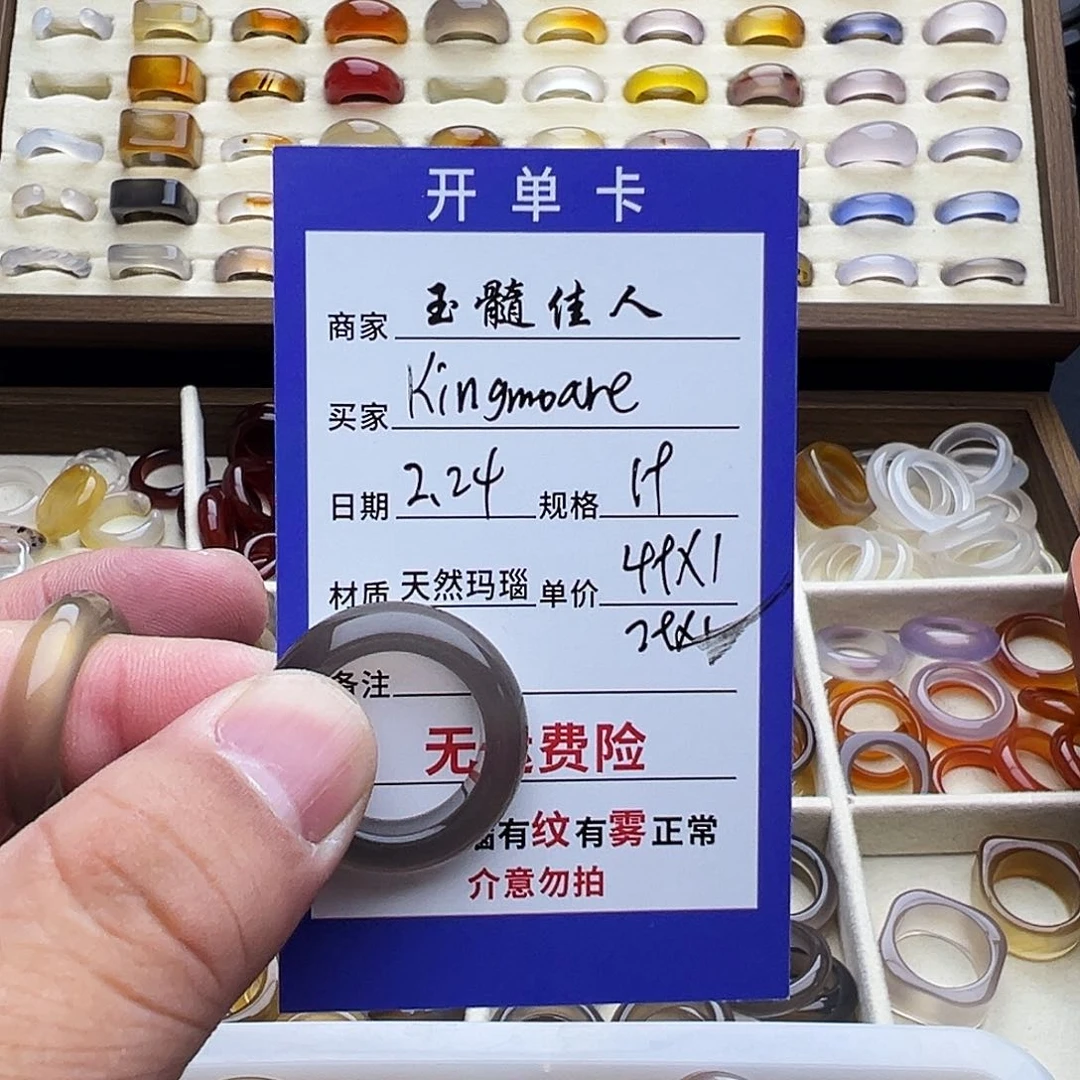 开单卡
商家 玉髓佳人
买家 Kingmoare
日期 2.24 规格 1件
材质 天然玛瑙 单价
备注
无 费险
有纹有雾正常
介意勿拍